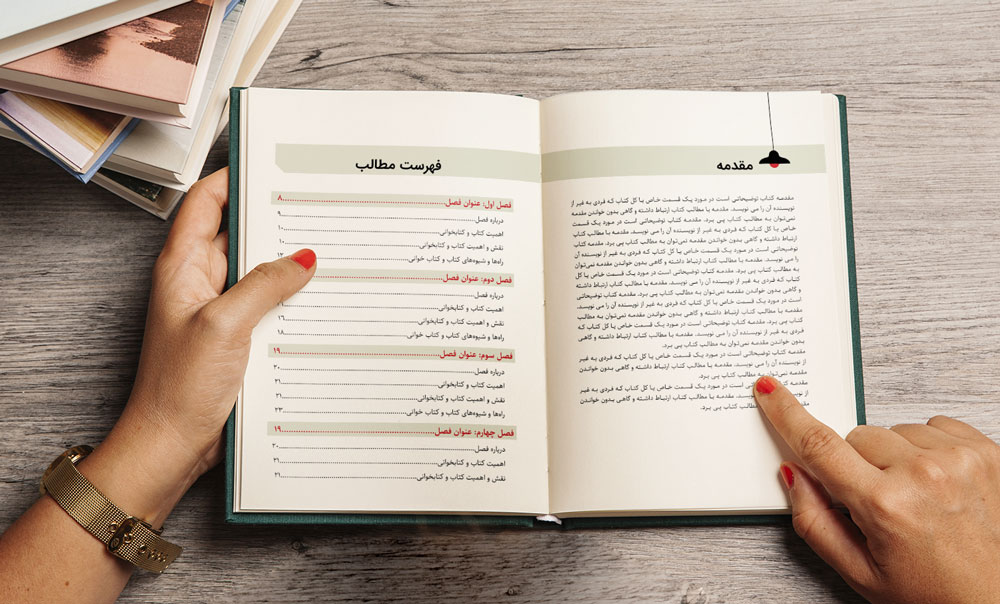 مقدمه
مقدمه کتاب توضیحاتی است در مورد یک قسمت خاص یا کل کتاب که فردی به غیر از
نویسنده آن را می نویسد. مقدمه با مطالب کتاب ارتباط داشته و گاهی بدون خواندن مقدمه
نمی‌توان به مطالب کتاب پی برد. مقدمه کتاب توضیحاتی است در مورد یک قسمت
خاص یا کل کتاب که فردی به غیر از نویسنده آن را می نویسد. مقدمه با مطالب کتاب
ارتباط داشته و گاهی بدون خواندن مقدمه نمی‌توان به مطالب کتاب پی برد. مقدمه
کتاب توضیحاتی است در مورد یک قسمت خاص یا کل کتاب که فردی به غیر از نویسنده آن
را می نویسد. مقدمه با مطالب کتاب ارتباط داشته و گاهی بدون خواندن مقدمه نمی‌توان
به مطالب کتاب پی برد. مقدمه کتاب توضیحاتی است در مورد یک قسمت خاص یا کل
کتاب که فردی به غیر از نویسنده آن را می نویسد. مقدمه با مطالب کتاب ارتباط داشته
و گاهی بدون خواندن مقدمه نمی‌توان به مطالب کتاب پی برد. مقدمه کتاب توضیحاتی
است در مورد یک قسمت خاص یا کل کتاب که فردی به غیر از نویسنده آن را می نویسد.
مقدمه با مطالب کتاب ارتباط داشته و گاهی بدون خواندن مقدمه نمی‌توان به مطالب
کتاب پی برد. مقدمه کتاب توضیحاتی است در مورد یک قسمت خاص یا کل کتاب که
فردی به غیر از نویسنده آن را می نویسد. مقدمه با مطالب کتاب ارتباط داشته و گاهی
بدون خواندن مقدمه نمی‌توان به مطالب کتاب پی برد.
مقدمه کتاب توضیحاتی است در مورد یک قسمت خاص یا کل کتاب که فردی به غیر
از نویسنده آن را می نویسد. مقدمه با مطالب کتاب ارتباط داشته و گاهی بدون خواندن
مقدمه نمی‌توان به مطالب کتاب پی برد.
مقدمه است در مورد یک قسمت خاص یا کل کتاب که فردی به غیر
از نویسد. مقدمه با مطالب کتاب ارتباط داشته و گاهی بدون خواندن
مطالب کتاب پی برد.
فهرست مطالب
فصل اول: عنوان فصل ۸
درباره فصل ۹
اهمیت کتاب و کتابخوانی ۱۰
نقش و اهمیت کتاب و کتابخوانی ۱۰
راه‌ها و شیوه‌های کتاب و کتاب خوانی
فصل دوم: عنوان فصل
درباره فصل
اهمیت کتاب و کتابخوانی
نقش و اهمیت کتاب و کتابخوانی ۱۶
راه‌ها و شیوه‌های کتاب و کتاب خوانی ۱۸
فصل سوم: عنوان فصل ۱۹
درباره فصل ۲۰
اهمیت کتاب و کتابخوانی ۲۱
نقش و اهمیت کتاب و کتابخوانی ۲۱
راه‌ها و شیوه‌های کتاب و کتاب خوانی ۲۳
فصل چهارم: عنوان فصل ۱۹
درباره فصل ۲۰
اهمیت کتاب و کتابخوانی ۲۱
نقش و اهمیت کتاب و کتابخوانی ۲۱